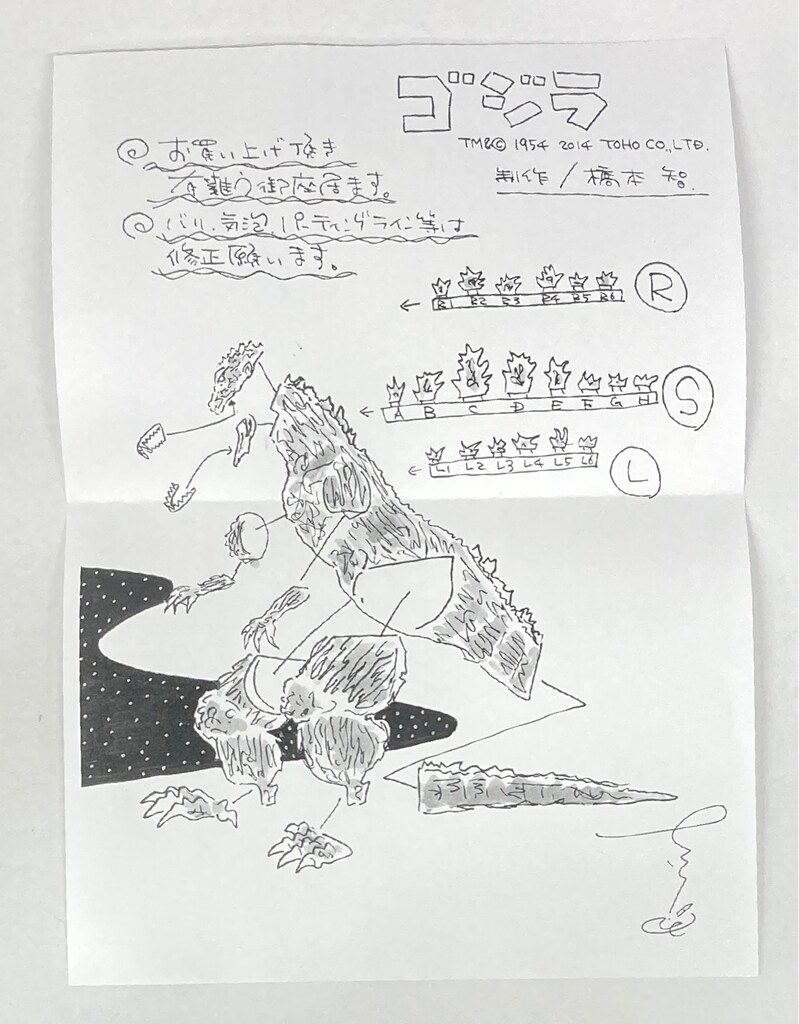 ゴジラ
TM&© 1954 2014 TOHO CO., LTD.
制作/橋本 智.
お買い上げ頂き
有難う御座居ます。
バリ、気泡、パーティングライン等は
修正願います。
B1 B2 B3 B4 B5 B6 R
A B C D E F G H S
L1 L2 L3 L4 L5 L6 L